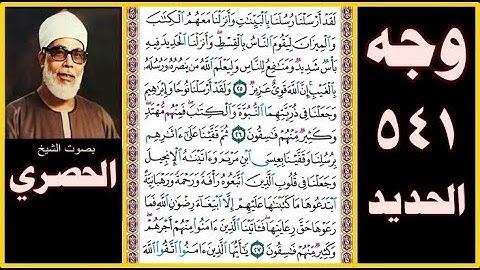 وجه
٥٤١
الحديد
لَقَدْ أَرْسَلْنَا رُسُلَنَا بِٱلْبَيِّنَٰتِ وَأَنزَلْنَا مَعَهُمُ ٱلْكِتَٰبَ
وَٱلْمِيزَانَ لِيَقُومَ ٱلنَّاسُ بِٱلْقِسْطِ وَأَنزَلْنَا ٱلْحَدِيدَ فِيهِ
بَأْسٌ شَدِيدٌ وَمَنَٰفِعُ لِلنَّاسِ وَلِيَعْلَمَ ٱللَّهُ مَن يَنصُرُهُۥ وَرُسُلَهُۥ
بِٱلْغَيْبِ إِنَّ ٱللَّهَ قَوِىٌّ عَزِيزٌ ٢٥ وَلَقَدْ أَرْسَلْنَا نُوحًا وَإِبْرَٰهِيمَ
وَجَعَلْنَا فِى ذُرِّيَّتِهِمَا ٱلنُّبُوَّةَ وَٱلْكِتَٰبَ فَمِنْهُم مُّهْتَدٍ
وَكَثِيرٌ مِّنْهُمْ فَٰسِقُونَ ٢٦ ثُمَّ قَفَّيْنَا عَلَىٰٓ ءَاثَٰرِهِم
بِرُسُلِنَا وَقَفَّيْنَا بِعِيسَى ٱبْنِ مَرْيَمَ وَءَاتَيْنَٰهُ ٱلْإِنجِيلَ
وَجَعَلْنَا فِى قُلُوبِ ٱلَّذِينَ ٱتَّبَعُوهُ رَأْفَةً وَرَحْمَةً وَرَهْبَانِيَّةً
ٱبْتَدَعُوهَا مَا كَتَبْنَٰهَا عَلَيْهِمْ إِلَّا ٱبْتِغَآءَ رِضْوَٰنِ ٱللَّهِ فَمَا
رَعَوْهَا حَقَّ رِعَايَتِهَا فَـَٔاتَيْنَا ٱلَّذِينَ ءَامَنُوا۟ مِنْهُمْ أَجْرَهُمْ
وَكَثِيرٌ مِّنْهُمْ فَٰسِقُونَ ٢٧ يَٰٓأَيُّهَا ٱلَّذِينَ ءَامَنُوا۟ ٱتَّقُوا۟ ٱللَّهَ
بصوت الشيخ
الحصري